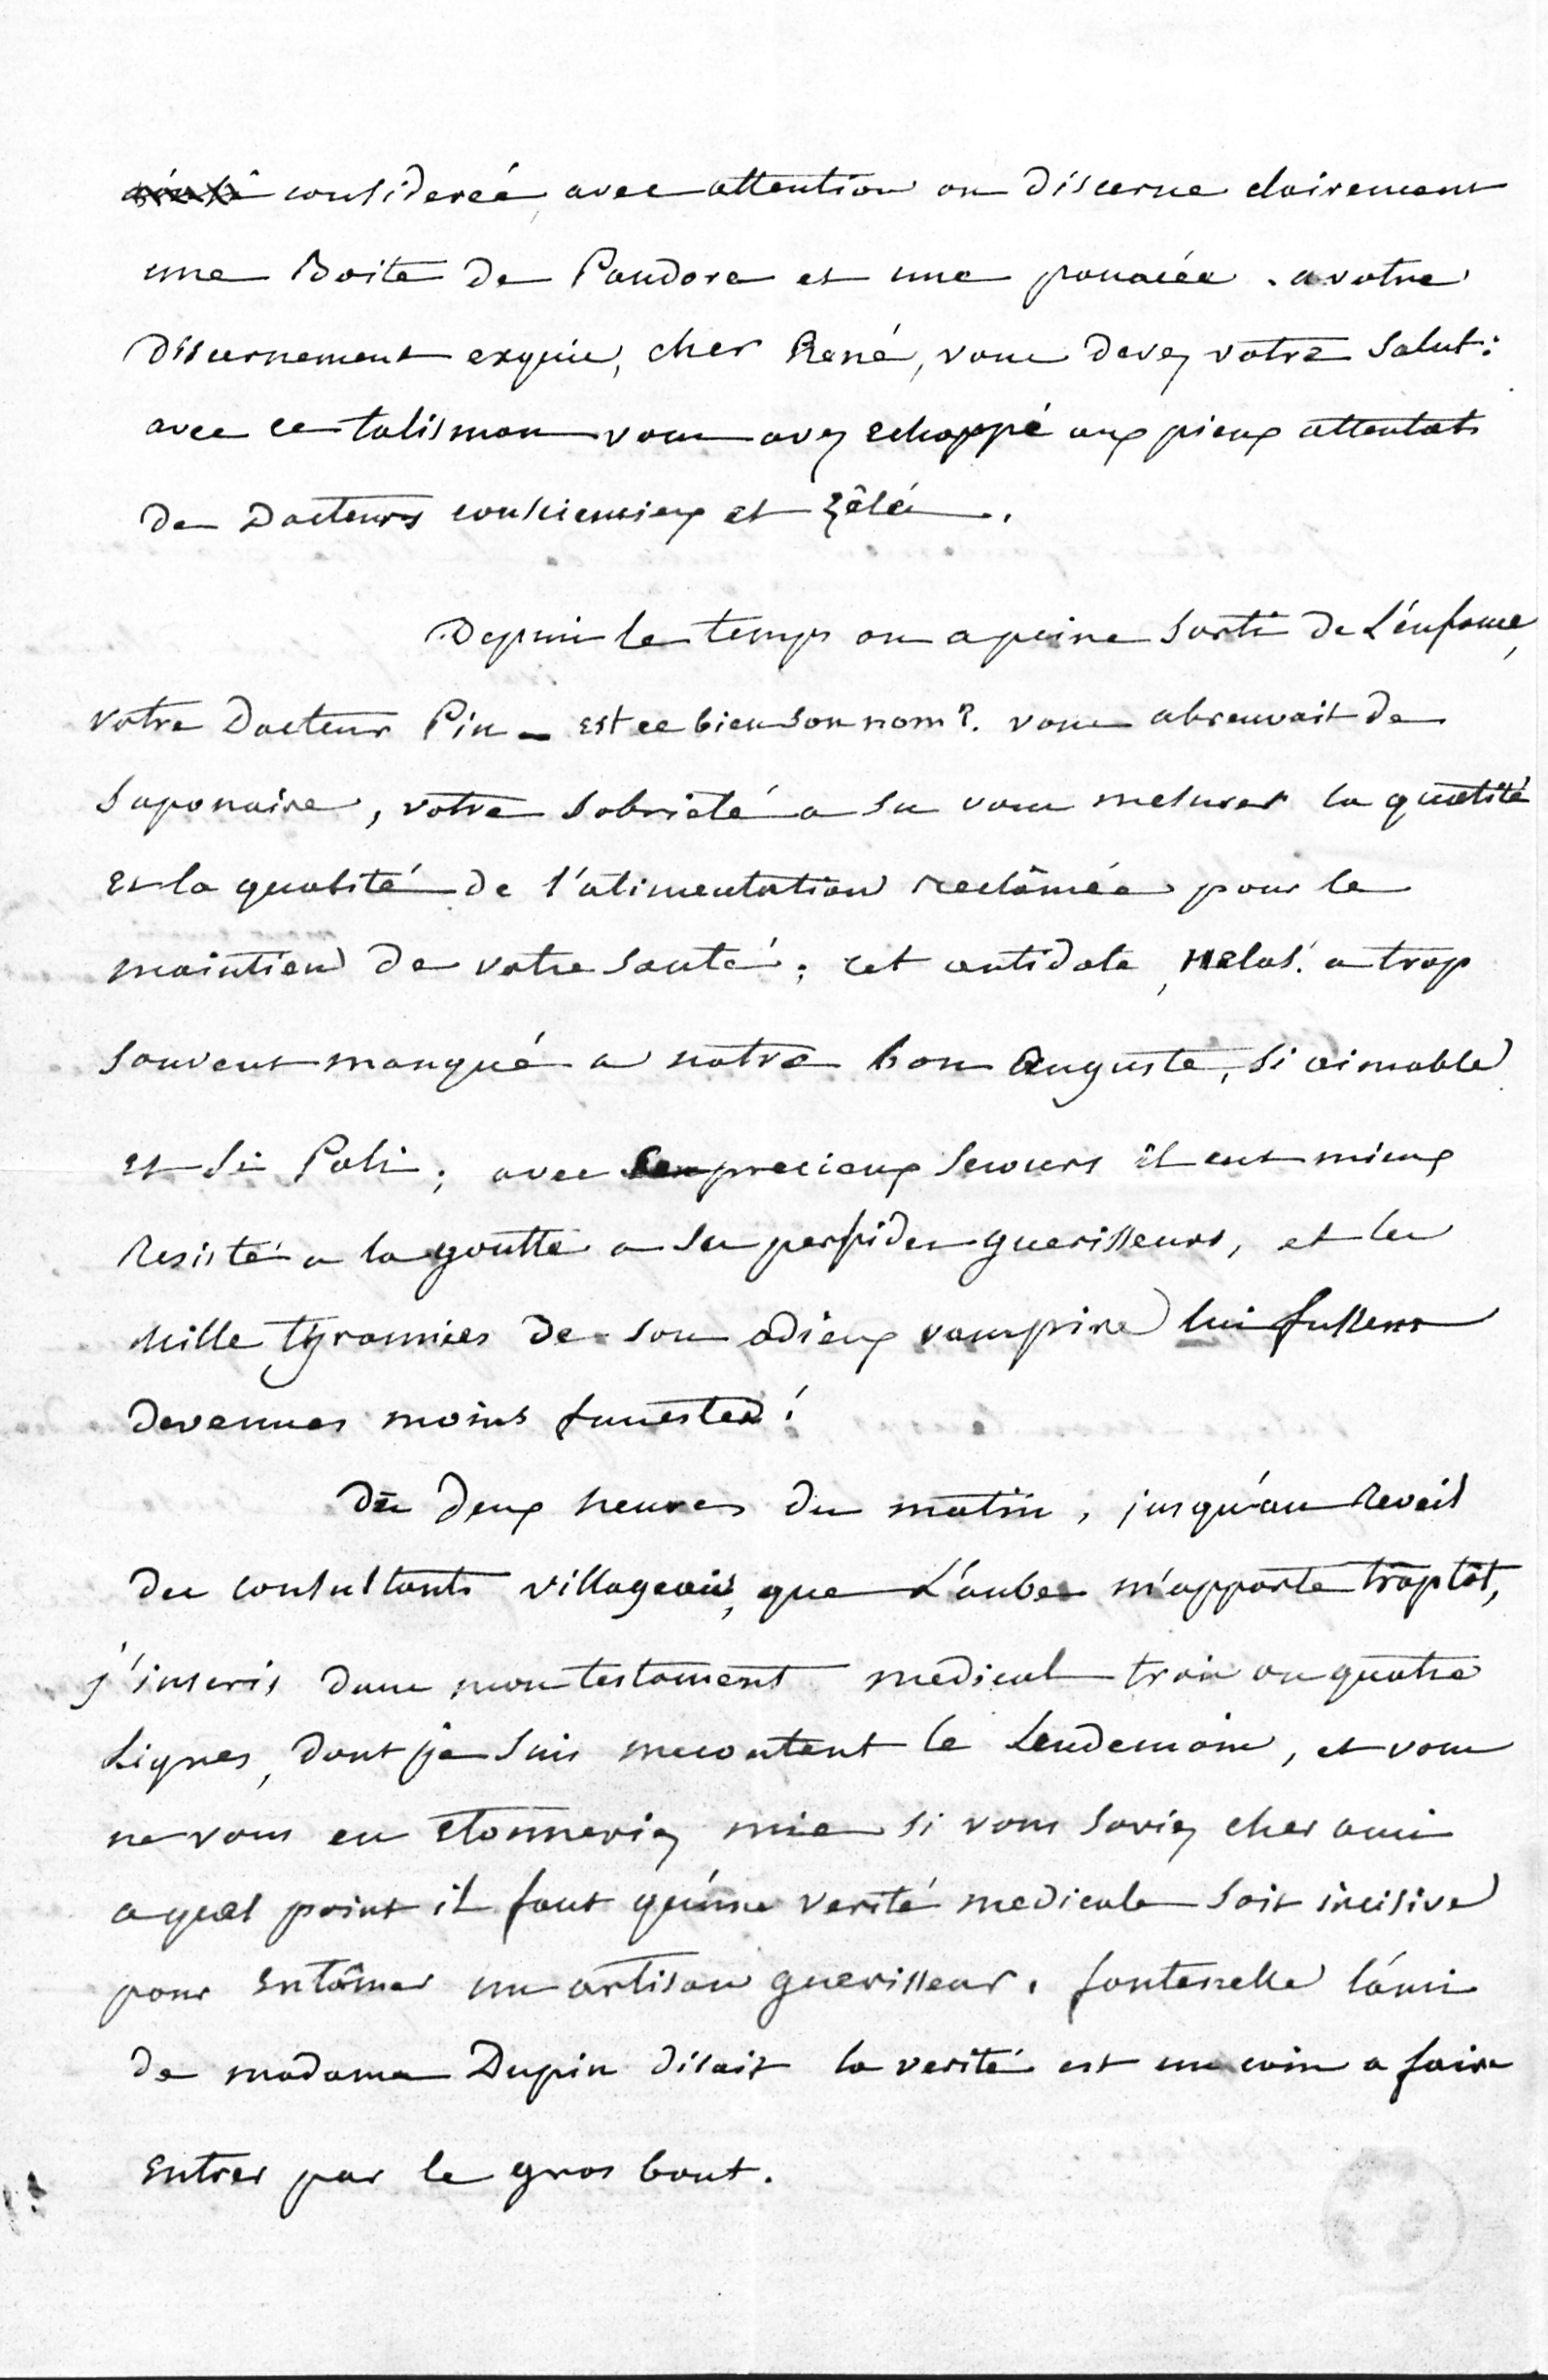 considereé, avec attention on discerne clairement
une Boite de Pandore et une panacée. a votre
discernement exquis, cher René, vous devez votre salut:
avec ce talisman vous avez echappé aux pieux attentats
de Docteurs consciencieux et zêlés.
Depuis le temps ou a peine sorti de L'énfance,
votre Docteur Pin - est ce bien son nom?. vous abreuvait de
Saponaire, votre sobriété a su vous mesurer la quatité
et la qualité de l'alimentation reclâmée pour le
maintien de votre santé; cet antidote, Helas! a trop
souvent manqué a notre bon Auguste, si aimable
et si Poli; avec precieux secours il eut mieux
Resisté a la goutte a ses perfides guerisseurs, et les
Mille tyrannies de son odieux vampire lui fussent
devenues moins funestes!
de deux heures du matin, jusqu'au Reveil
des consultants villageois, que L'aube m'apporte trop tôt,
j'inscris dans mon testament medical trois ou quatre
Lignes, dont je suis mecontent le Lendemain, et vous
ne vous en etonneriez mie si vous saviez cher ami
a quel point il faut qu'une verité medicale soit incisive
pour entâmer un artisan guerisseur. fontenelle l'ámi
de madame Dupin disait la verité est un coin a faire
entrer par le gros bout.